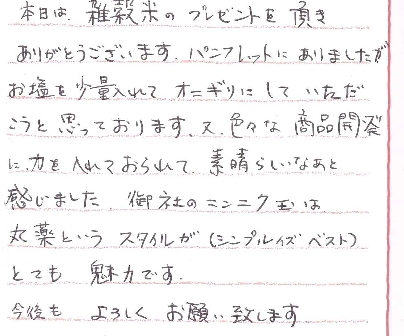 本日は 雑穀米の プレゼントを 頂き
ありがとうございます. パンフレットに ありましたが
お塩を 少量入れて オニギリに して いただ
こうと 思っております. 又、色々な 商品開発
に、力を 入れて おられて、素晴らしいなあと
感じました. 御社の ニンニク玉は
丸薬という スタイルが (シンプルイズ ベスト)
とても 魅力です.
今後も よろしく お願い致します